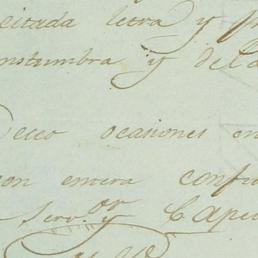 citada letra y p
nstumbra y del
Deseo ocasiones en
con entera confi
Serv.or y Cape